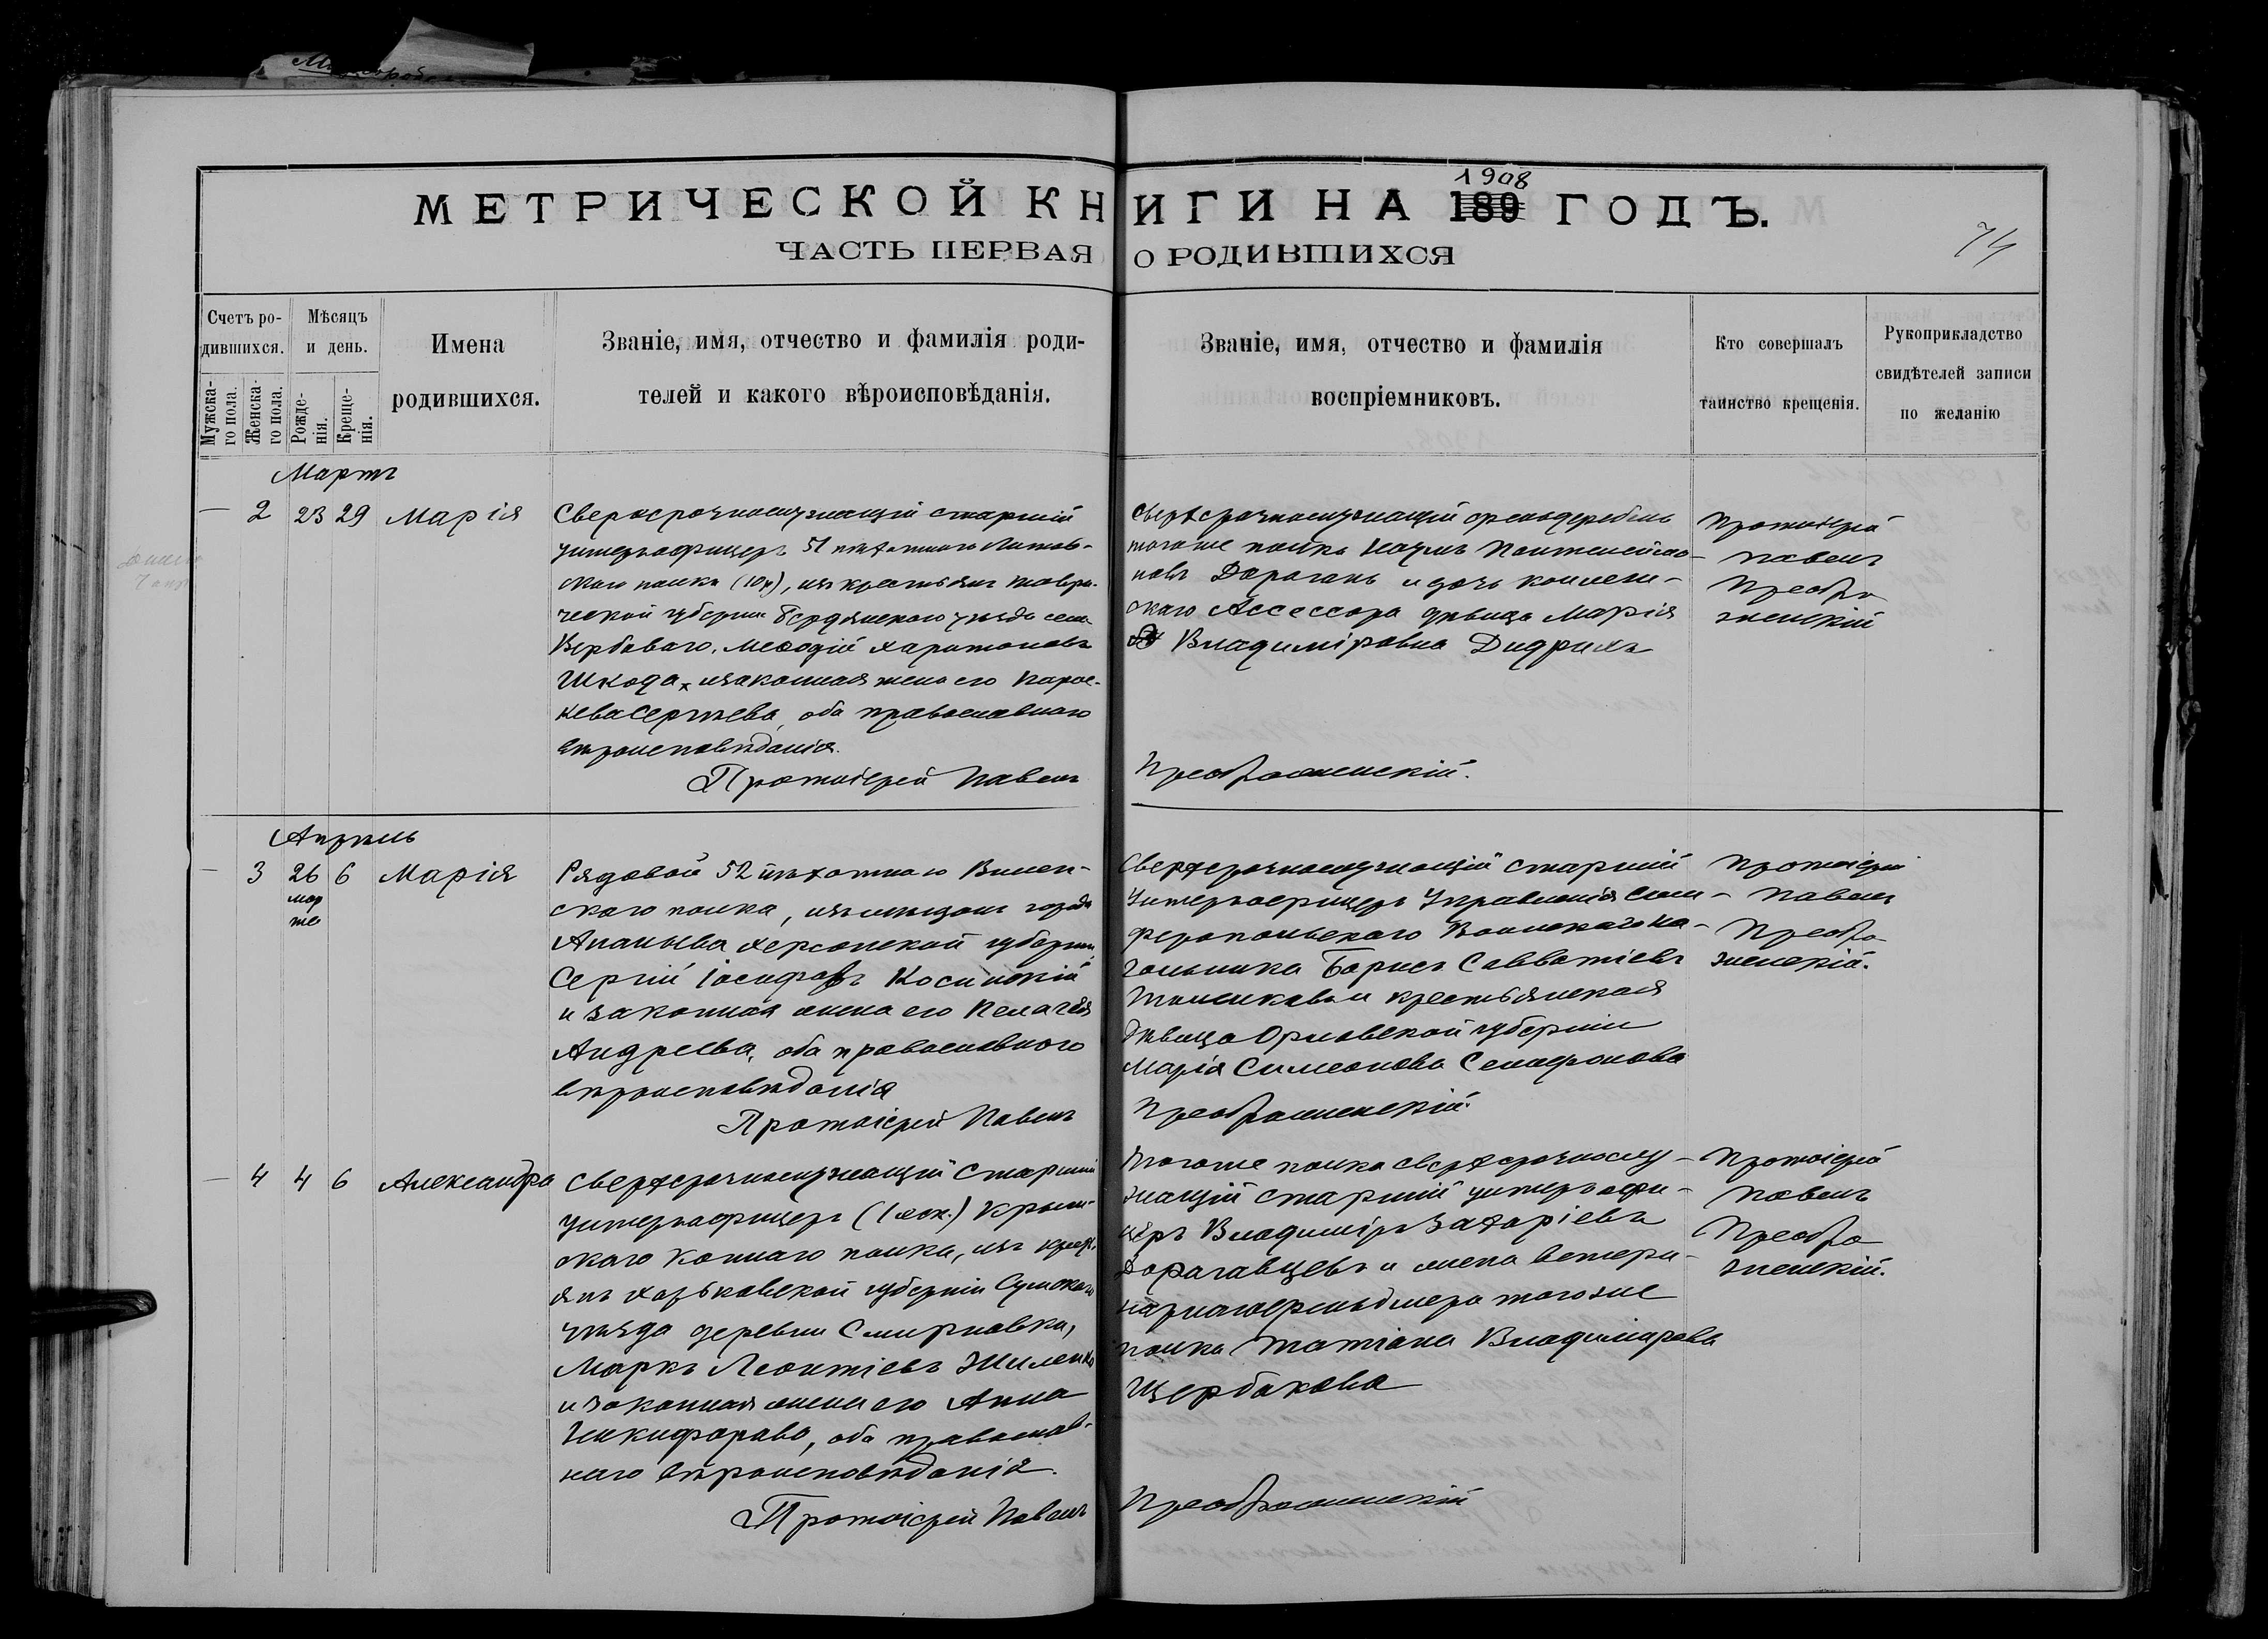 МЕТРИЧЕСКОЙ КНИГИ НА 189 1908 ГОДЪ.
ЧАСТЬ ПЕРВАЯ О РОДИВШИХСЯ
74
Счетъ ро-
дившихся.
Мужска-
го пола.
Женска-
го пола.
Мѣсяцъ
и день.
Рожде-
нія.
Креще-
нія.
Имена
родившихся.
Званіе, имя, отчество и фамилія роди-
телей и какого вѣроисповѣданія.
Званіе, имя, отчество и фамилія
воспріемниковъ.
Кто совершалъ
таинство крещенія.
Рукоприкладство
свидѣтелей записи
по желанію
Мартъ
— 2 23 29 Марія
Сверхсрочнослужащій старшій
унтеръ-офицеръ 51 пѣхотнаго Литов-
скаго полка (10 р), изъ крестьянъ Таври-
ческой губерніи Бердянскаго уѣзда села
Вербоваго, Меѳодій Харитоновъ
Шкода, и законная жена его Парас-
кева Сергѣева, оба православнаго
вѣроисповѣданія.
Протоіерей Павелъ Преображенскій.
Сверхсрочнослужащій фельдфебель
тогоже полка Наумъ Пантелеймо-
новъ Дараганъ и дочь коллеж-
скаго Ассессора дѣвица Марія
Владиміровна Дидрихъ
Протоіерей
Павелъ
Преобра
женскій
Апрѣль
— 3 26 6 Марія
мар
та
Рядовой 52 пѣхотнаго Вилен-
скаго полка, изъ мѣщанъ города
Ананьева Херсонской губерніи
Сергій Іосифовъ Косинскій
и законная жена его Пелагея
Андреева, оба православнаго
вѣроисповѣданія
Протоіерей Павелъ Преображенскій
Сверхсрочнослужащій старшій
унтеръ-офицеръ Управленія Сим-
феропольскаго Воинскаго На-
чальника Борисъ Савватіевъ
и крестьянская
дѣвица Орловской губерніи
Марія Симеонова Селафонова
Протоіерей
Павелъ
Преобра
женскій.
— 4 4 6 Александра
Сверхсрочнослужащій старшій
унтеръ-офицеръ (1 эск.) Крым-
скаго Коннаго полка, изъ крест.
янъ Харьковской губерніи Сумскаго
уѣзда деревни Смирновки,
Маркъ Леонтіевъ Жиленко
и законная жена его Анна
Никифорова, оба православ-
наго вѣроисповѣданія.
Протоіерей Павелъ Преображенскій
Тогоже полка сверхсрочнослу-
жащій старшій унтеръ-офи-
церъ Владиміръ Захаріевъ
Дарагавцевъ и жена ветери-
нарнаго фельдшера тогоже
полка Татіана Владимірова
Щербакова
Протоіерей
Павелъ
Преобра
женскій.